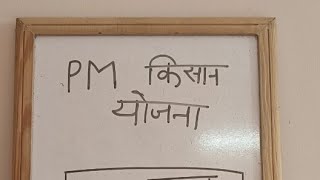 PM किसान
योजना